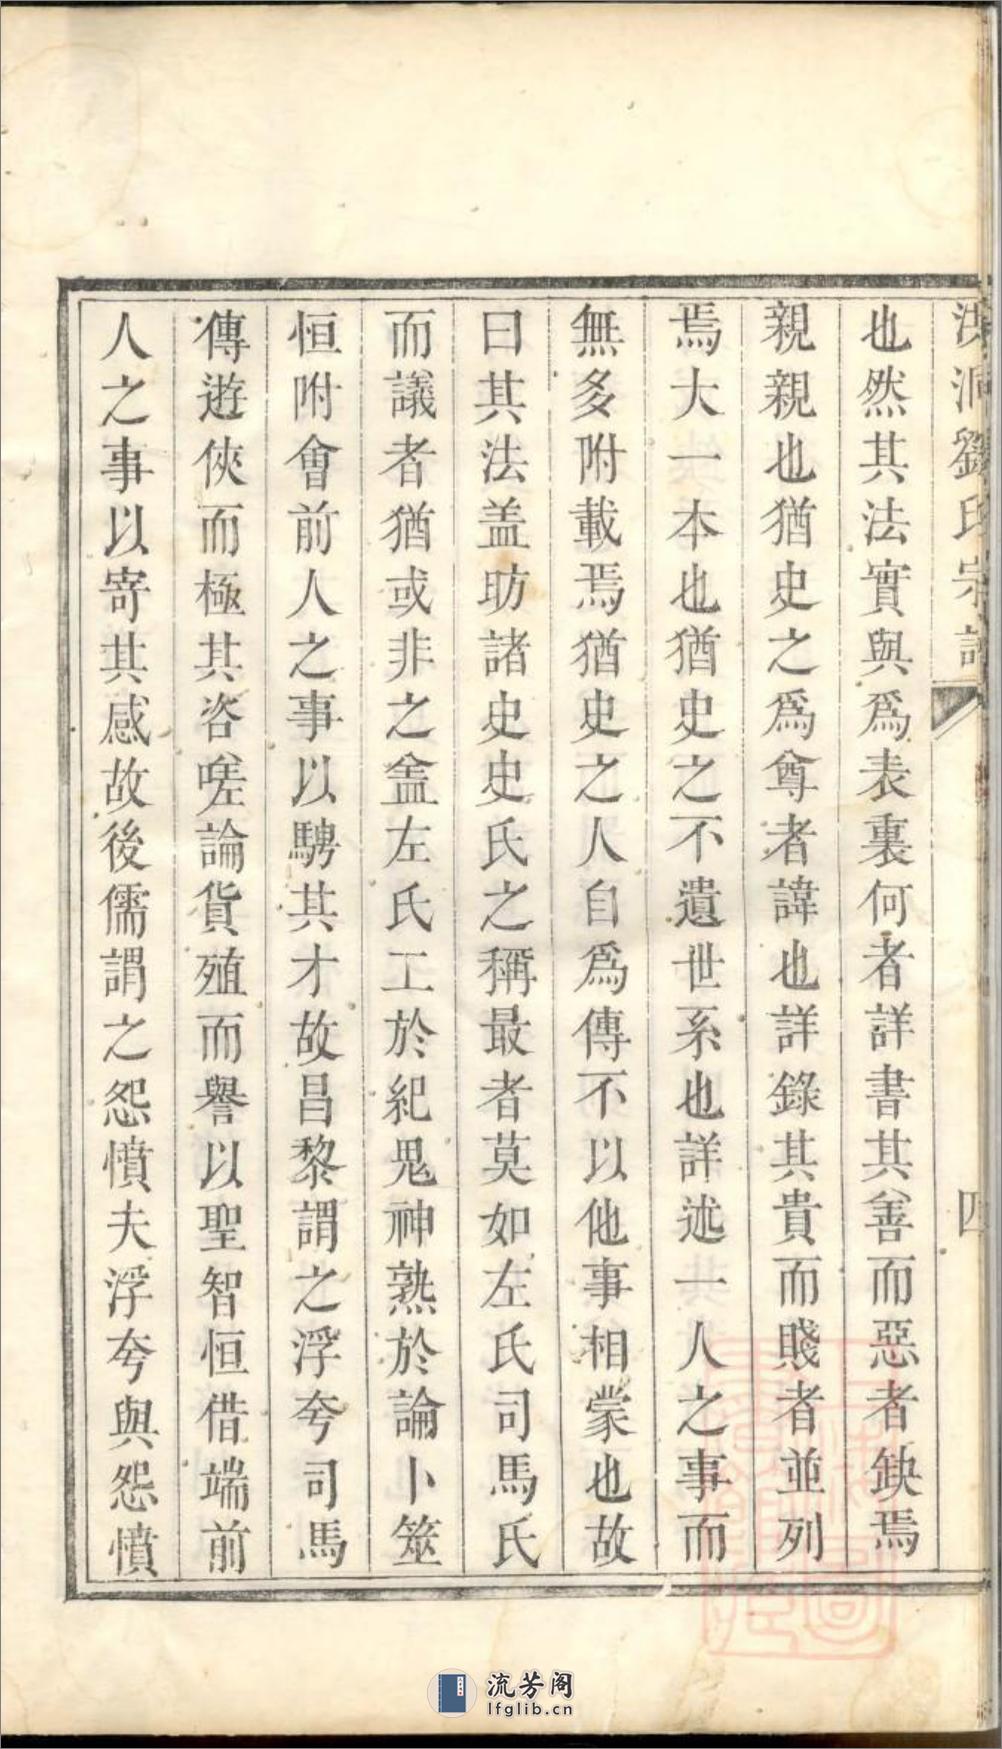 洪洞劉氏宗譜
四
也然其法實與爲表裏何者詳書其善而惡者缺焉
親親也猶史之爲尊者諱也詳錄其貴而賤者並列
焉大一本也猶史之不遺世系也詳述一人之事而
無多附載焉猶史之人自爲傳不以他事相蒙也故
曰其法盖助諸史史氏之稱最者莫如左氏司馬氏
而議者猶或非之盖左氏工於紀鬼神熟於論卜筮
恒附會前人之事以騁其才故昌黎謂之浮夸司馬
傳遊俠而極其咨嗟論貨殖而譽以聖智恒借端前
人之事以寄其感故後儒謂之怨憤夫浮夸與怨憤
流芳阁
lfglib.cn